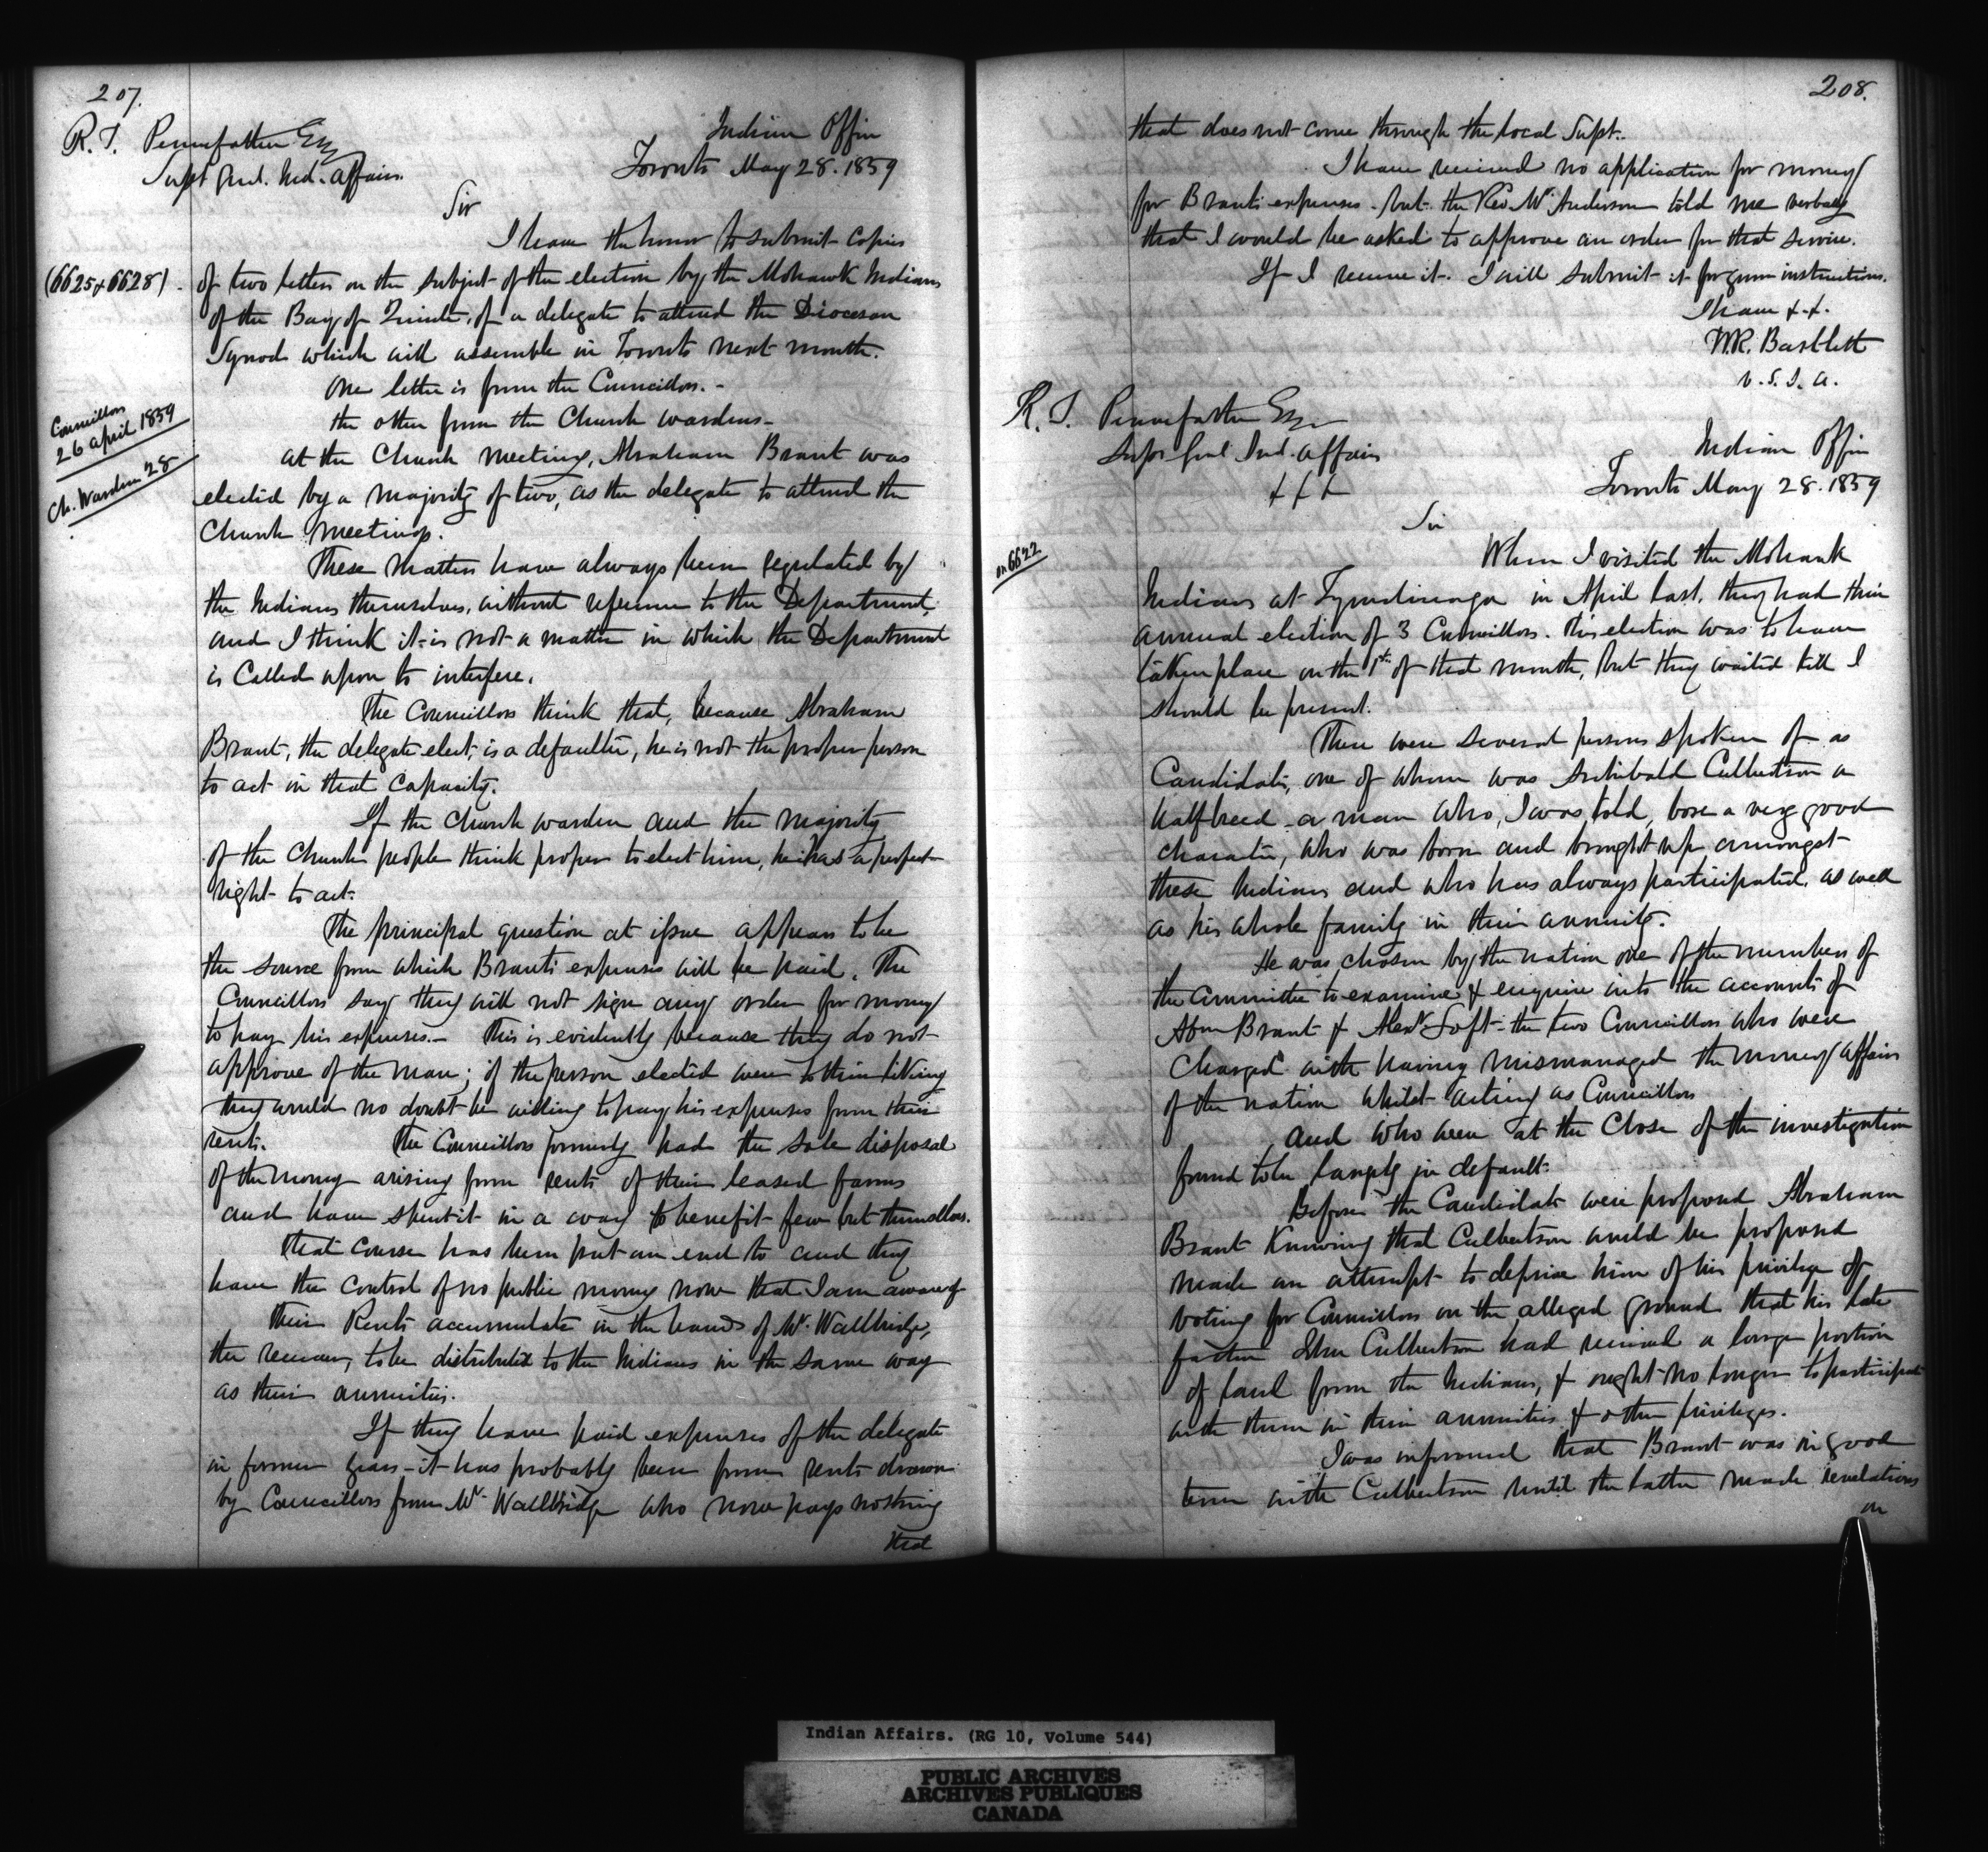 207.
R. T. Pennefather Esq
Supt Genl. Ind. Affairs.
Indian Office
Toronto May 28. 1859
Sir
I have the honor to submit copies
(6625 & 6628) - of two letters on the subject of the election by the Mohawk Indians
of the Bay of Quinté, of a delegate to attend the Diocesan
Synod which will assemble in Toronto next month.
One letter is from the Councillors. -
the other from the Church wardens -
Councillors
26 april 1859
Ch. Warden 28
at the Church meeting, Abraham Brant was
elected by a majority of two, as the delegate to attend the
Church meetings.
These matters have always been regulated by
the Indians themselves, without reference to the Department,
and I think it is not a matter in which the Department
is Called upon to interfere.
The Councillors think that, because Abraham
Brant, the delegate elect, is a defaulter, he is not the proper person
to act in that Capacity.
If the Church warden and the majority
of the Church people think proper to elect him, he has a perfect
right to act.
The principal question at issue appears to be
the source from which Brants expenses will be paid. The
Councillors say they will not sign any order for money
to pay his expenses. - This is evidently because they do not
approve of the man; if the person elected were to their liking
they would no doubt be willing to pay his expenses from their
rents. The Councillors formerly had the sole disposal
of the money arising from rents of their leased farms
and have spent it in a way to benefit few but themselves.
That Course has been put an end to and they
have the control of no public money now that I am aware of
Their Rents accumulate in the hands of Mr. Wallbridge,
the receiver, to be distributed to the Indians in the same way
as their annuities.
If they have paid expenses of the delegate
in former years - it has probably been from rents drawn
by Councillors from Mr. Wallbridge who now pays nothing
that
208.
that does not come through the local Supt.
I have received no application for money
for Brants expenses - but the Rev. Mr. Anderson told me verbally
that I would be asked to approve an order for that service.
If I receive it. I will submit it for your instructions.
I have &.&.
W.R. Bartlett
V. S. I. A.
R. T. Pennefather Esq
Supt Genl Ind. Affairs
&&&
Indian Office
Toronto May 28. 1859
Sir
on 6622
When I visited the Mohawk
Indians at Tyendinaga in April last, they had their
annual election of 3 Councillors. This election was to have
taken place on the 1st of that month, but they waited till I
should be present.
There were several persons spoken of as
Candidates, one of whom was Archibald Culbertson a
halfbreed - a man who, I was told, bore a very good
character, who was born and brought up amongst
these Indians and who has always participated, as well
as his whole family in their annuity.
He was chosen by the nation one of the members of
the Committee to examine & enquire into the accounts of
Abm Brant & Alexr Loft - the two Councillors who were
charged with having mismanaged the money affairs
of the nation whilst acting as Councillors
and who were at the Close of the investigation
found to be largely in default.
Before the Candidates were proposed Abraham
Brant Knowing that Culbertson would be proposed
made an attempt to deprive him of his privilege of
voting for Councillors on the alleged ground that his late
father John Culbertson had received a large portion
of land from the Indians, & ought no longer to participate
with them in their annuities & other privileges.
I was informed that Brant was in good
terms with Culbertson until the latter made revelations
on
Indian Affairs. (RG 10, Volume 544)
PUBLIC ARCHIVES
ARCHIVES PUBLIQUES
CANADA